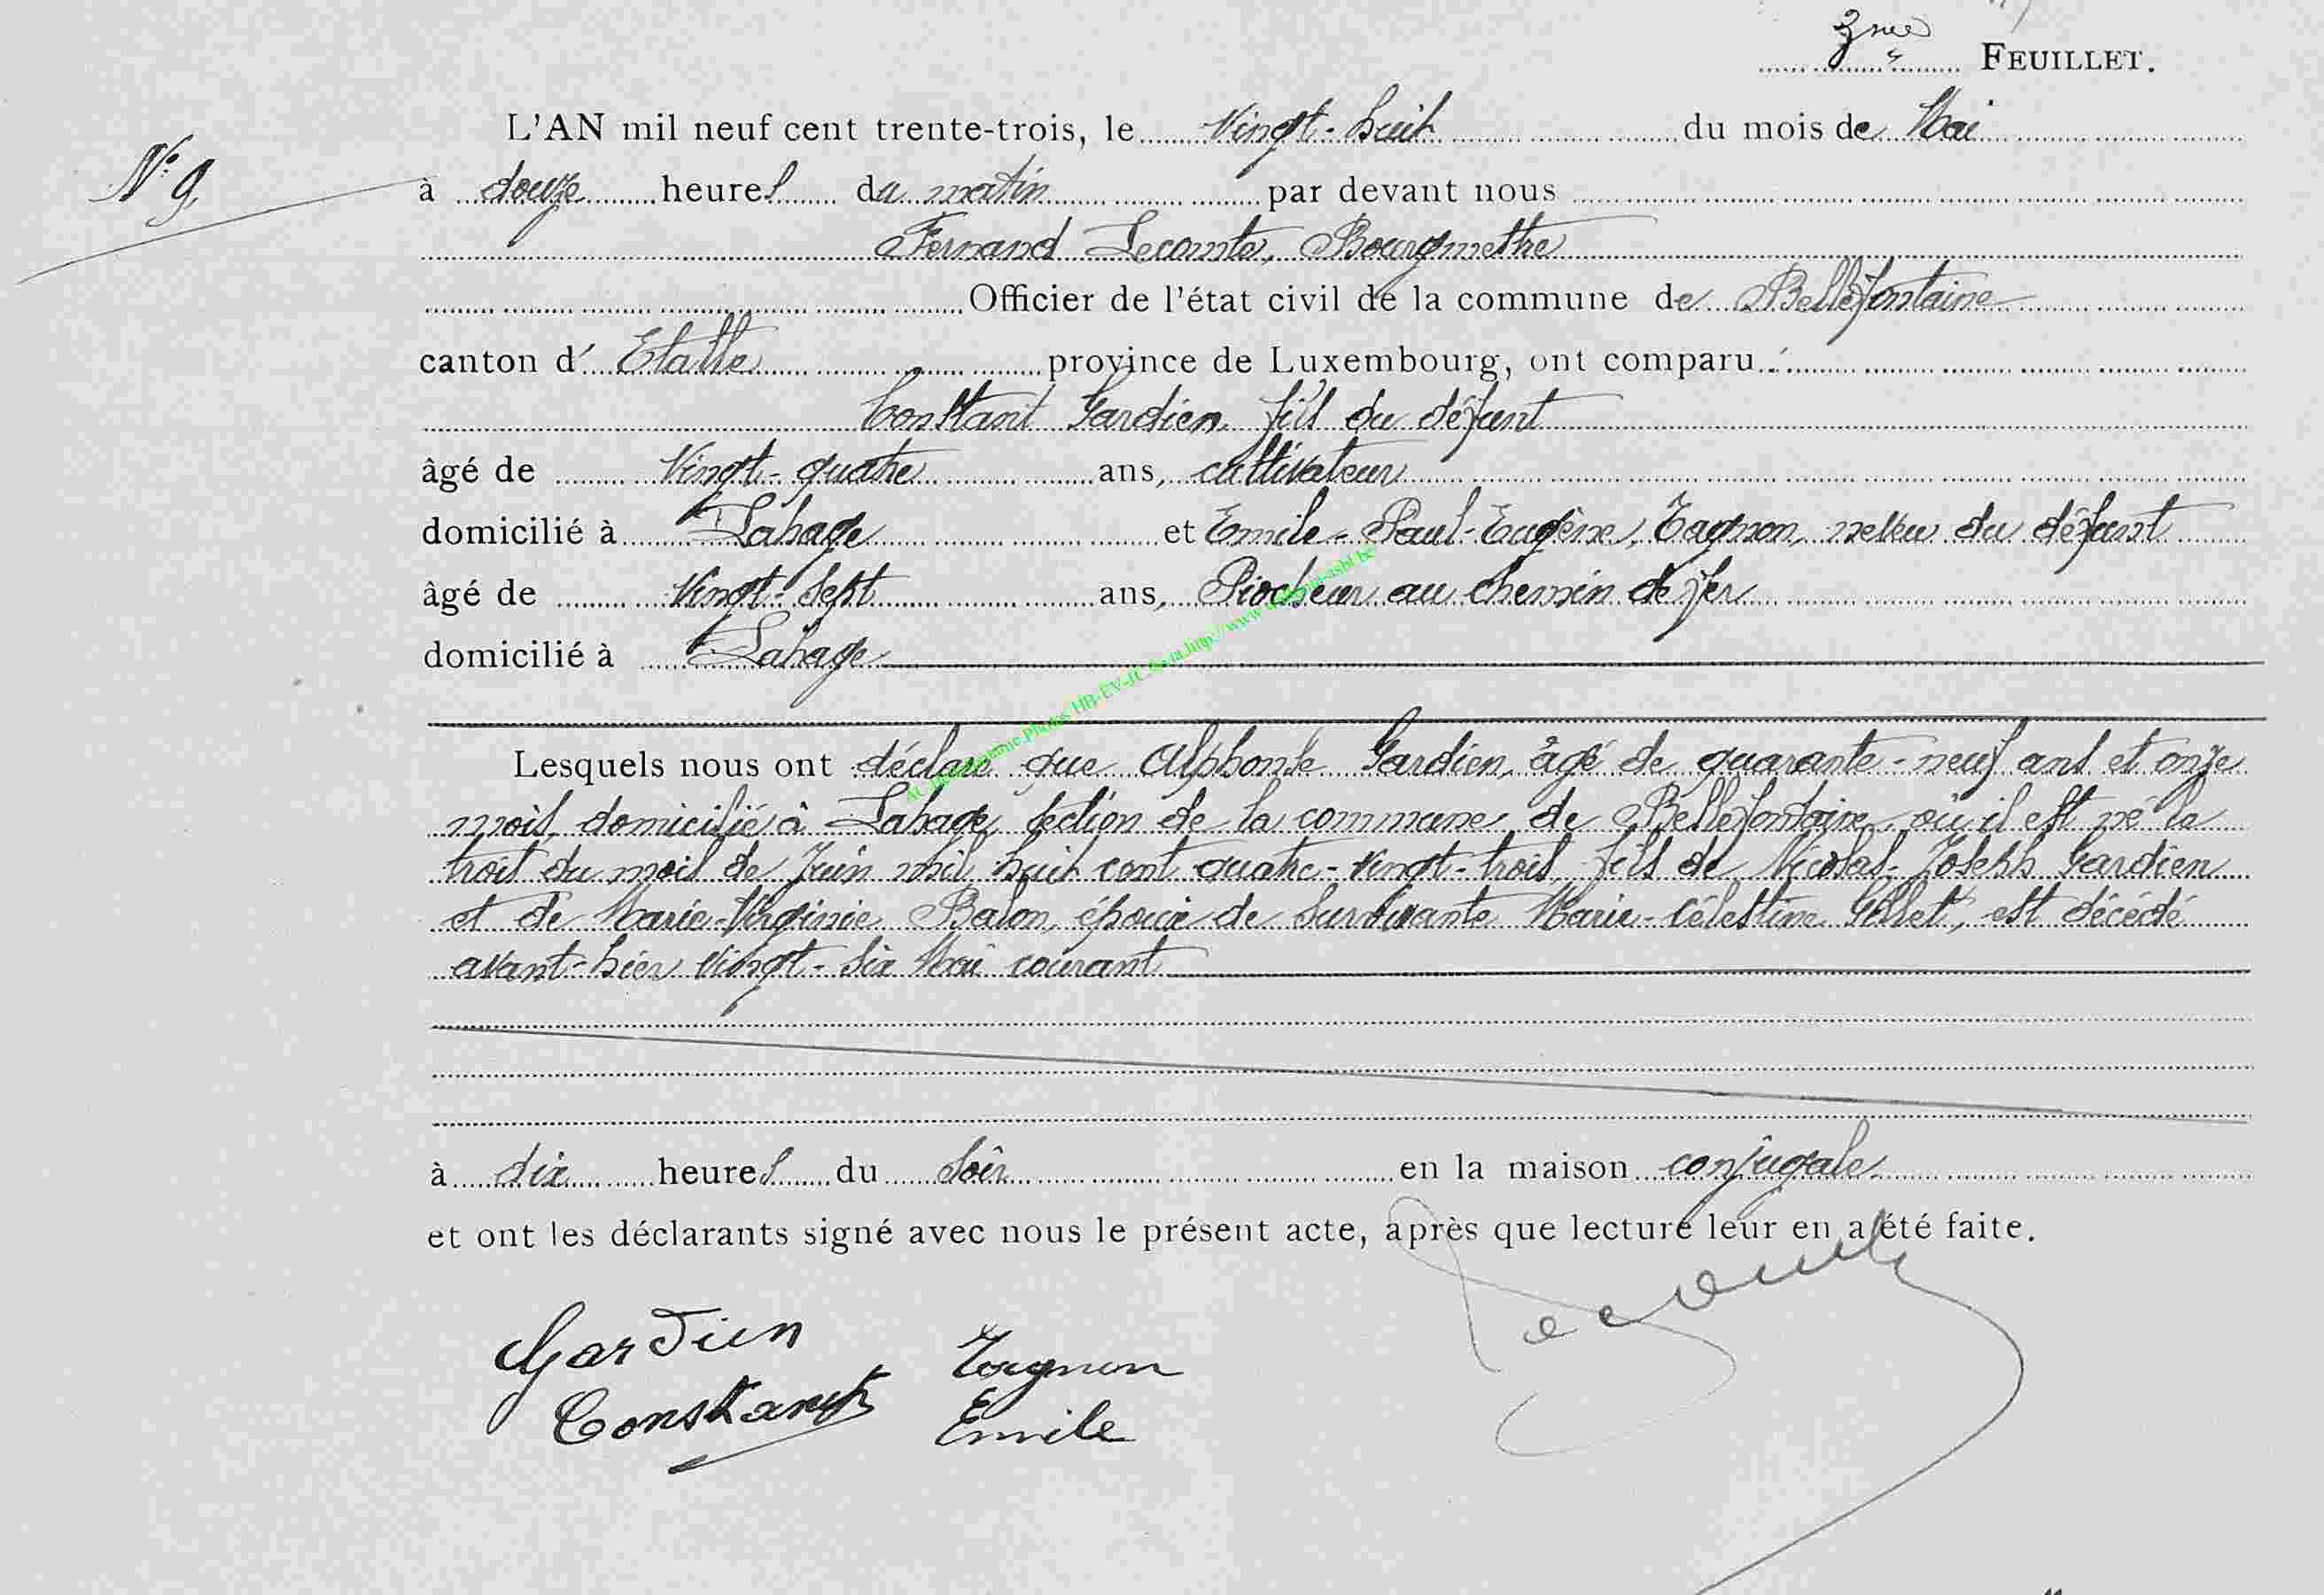 3me FEUILLET.
L'AN mil neuf cent trente-trois, le Vingt-huit du mois de Mai
N° 9.
à douze heures du matin par devant nous
Fernand Lecomte, Bourgmestre
Officier de l'état civil de la commune de Bellefontaine
canton d' Etalle province de Luxembourg, ont comparu :
Constant Gardien, fils du défunt
âgé de Vingt-quatre ans, cultivateur
domicilié à Lahage et Emile-Paul-Eugène, Tagnon, neveu du défunt
âgé de Vingt-sept ans, Piocheur au chemin de fer
domicilié à Lahage
Lesquels nous ont déclaré que Alphonse Gardien, âgé de quarante-neuf ans et onze
mois, domicilié à Lahage, section de la commune de Bellefontaine, où il est né le
trois du mois de Juin mil huit cent quatre-vingt-trois, fils de Nicolas-Joseph Gardien
et de Marie-Virginie Balon, époux de survivante Marie-Célestine Gillet, est décédé
avant-hier vingt-six Mai courant
à dix heures du soir en la maison conjugale
et ont les déclarants signé avec nous le présent acte, après que lecture leur en a été faite.
Lecomte
Gardien Tagnon
Constant Emile